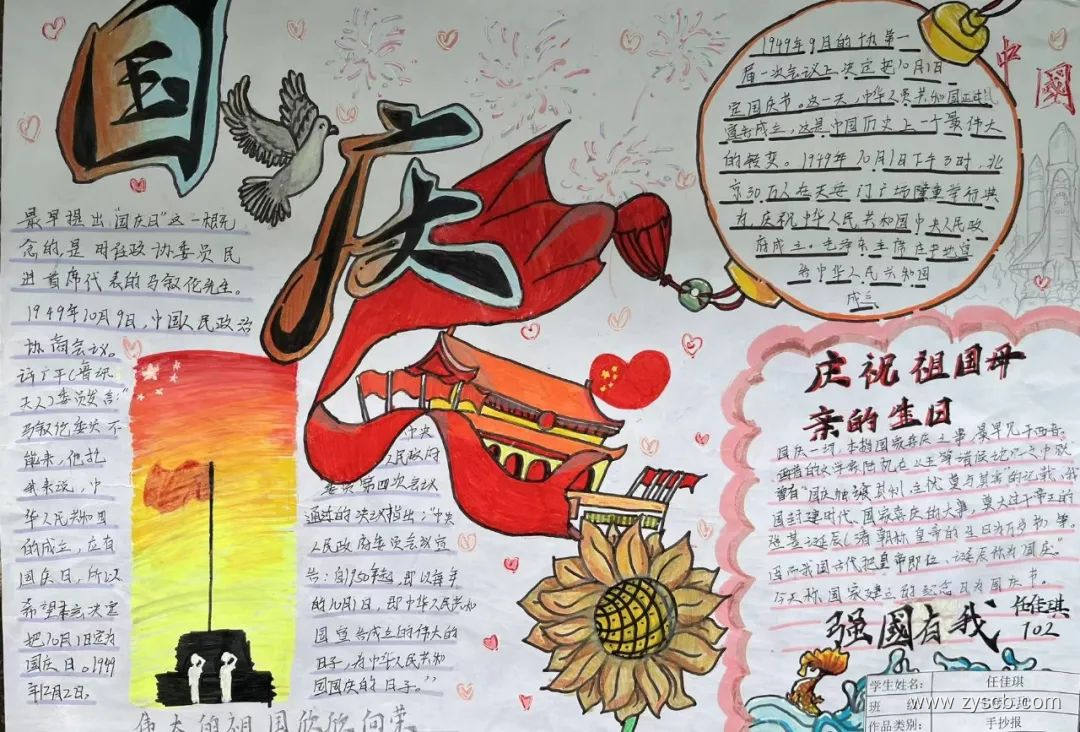 国庆
最早提出"国庆日"这一概
念的,是时任政协委员民
进首席代表的马叙伦先生。
1949年10月9日,中国人民政治
协商会议。
许广平
委员发言:"
马叙伦委员不
能来,他托
我来说,中
华人民共和国
的成立,应有
国庆日,所以
希望本会决定
把10月1日定为
国庆日。1949
年12月2日,
中央
人民政府
委员第四次会议
通过的决议指出:"中央
人民政府委员会议宣
告:自1950年起,即以每年
的10月1日,即中华人民共和
国宣告成立的伟大的
日子,为中华人民共和
国国庆的日子。"
伟大的祖国欣欣向荣
1949年9月的协第一
届一次会议上决定把10月1日
定国庆节。这一天,中华人民共和国正式
宣告成立,这是中国历史上一个最伟大
的转变。1949年10月1日下午3时,北
京30万人在天安门广场隆重举行典
礼,庆祝中华人民共和国中央人民政
府成立。毛泽东主席庄严地宣
告中华人民共和国
成立
中國
庆祝祖国母
亲的生日
国庆一词,本指国家喜庆之事,最早见于西晋。
西晋的文学家陆机在
曾有"国庆独飨其利,主忧莫与其害"的记载,我
国封建时代、国家喜庆的大事,莫大过于帝王的
登基、诞辰(清朝称皇帝的生日为万岁节)等。
因而我国古代把皇帝即位、诞辰称为"国庆"。
今天称国家建立的纪念日为国庆节。
强國有我
任佳琪
102
学生姓名: 任佳琪
班 级:
作品类别: 手抄报
www.zyscb.com